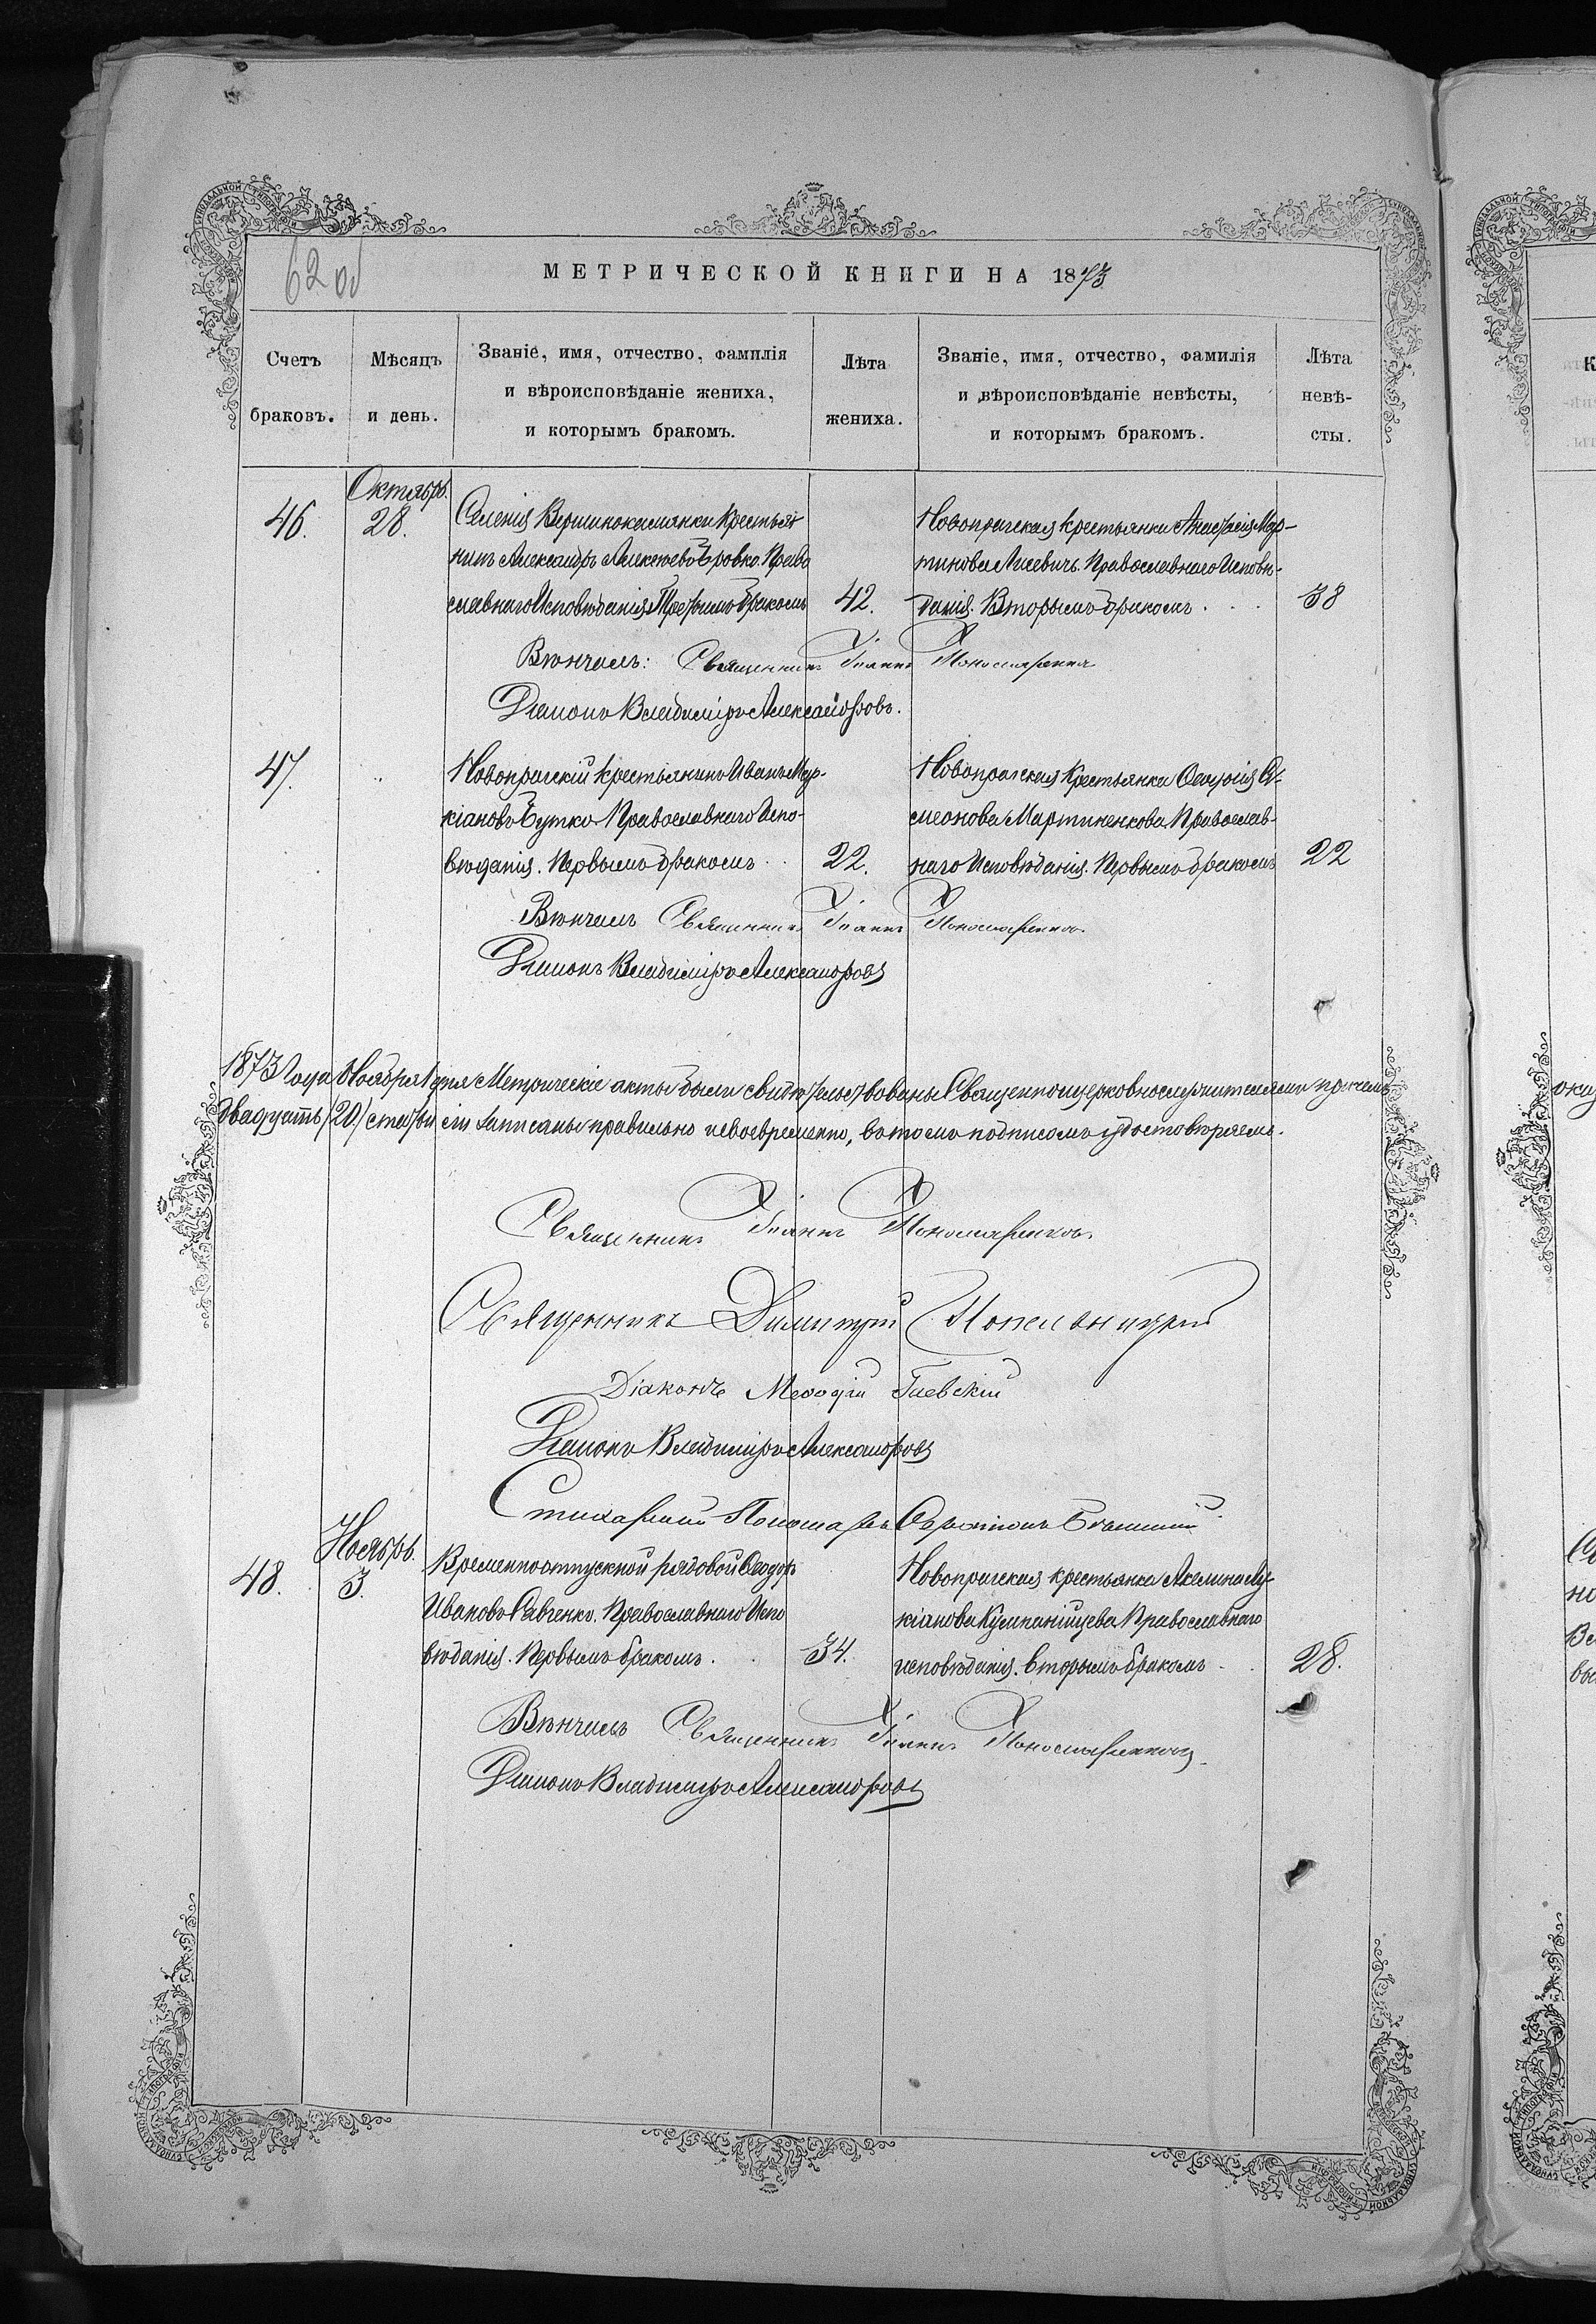 62 об
МЕТРИЧЕСКОЙ КНИГИ НА 1873
Счетъ браковъ.
Мѣсяцъ и день.
Званіе, имя, отчество, фамилія
и вѣроисповѣданіе жениха,
и которымъ бракомъ.
Лѣта жениха.
Званіе, имя, отчество, фамилія
и вѣроисповѣданіе невѣсты,
и которымъ бракомъ.
Лѣта невѣ-
сты.
46.
Октябрь.
28.
Селенія Вершинокамянки Крестья
нинъ Александръ Алексѣевъ Бровко. Право
славнаго Исповѣданія. Третьимъ бракомъ
42.
Новопрагская крестьянка Анастасія Мар-
тинова Лисевичь. Православнаго Исповѣ-
данія. Вторымъ бракомъ
38
Вѣнчалъ: Священникъ Іоаннъ Пономаренко
Дьяконъ Владиміръ Александровъ.
47.
Новопрагскій крестьянинъ Иванъ Мар-
кіановъ Бутко Православнаго Испо-
вѣданія. Первымъ бракомъ
22.
Новопрагская Крестьянка Ѳеодосія Си-
меонова Мартиненкова Православ-
наго Исповѣданія. Первымъ бракомъ
22
Вѣнчалъ Священникъ Іоаннъ Пономаренковъ
Дьяконъ Владиміръ Александровъ
1873 Года Ноября 1 дня Метрическіе акты были свидѣтельствованы Священноцерковнослужителями причемъ
двадцать /20/ статьи сіи записаны правильно и своевременно, въ томъ подписомъ удостовѣряемъ.
Священникъ Іоаннъ Пономаренковъ
Священникъ Димитрій
Діаконъ Меѳодій Гаевскій
Дьяконъ Владиміръ Александровъ
Стихарный Пономарь
48.
Ноябрь.
3.
Временноотпускной рядовой Ѳеодоръ
Ивановъ Савченко. Православнаго Испо
вѣданія. Первымъ бракомъ.
34.
Новопрагская крестьянка Акелина Лу-
кіанова Православнаго
исповѣданія. вторымъ бракомъ
28.
Вѣнчалъ Священникъ Іоаннъ Пономаренковъ
Дьяконъ Владиміръ Александровъ